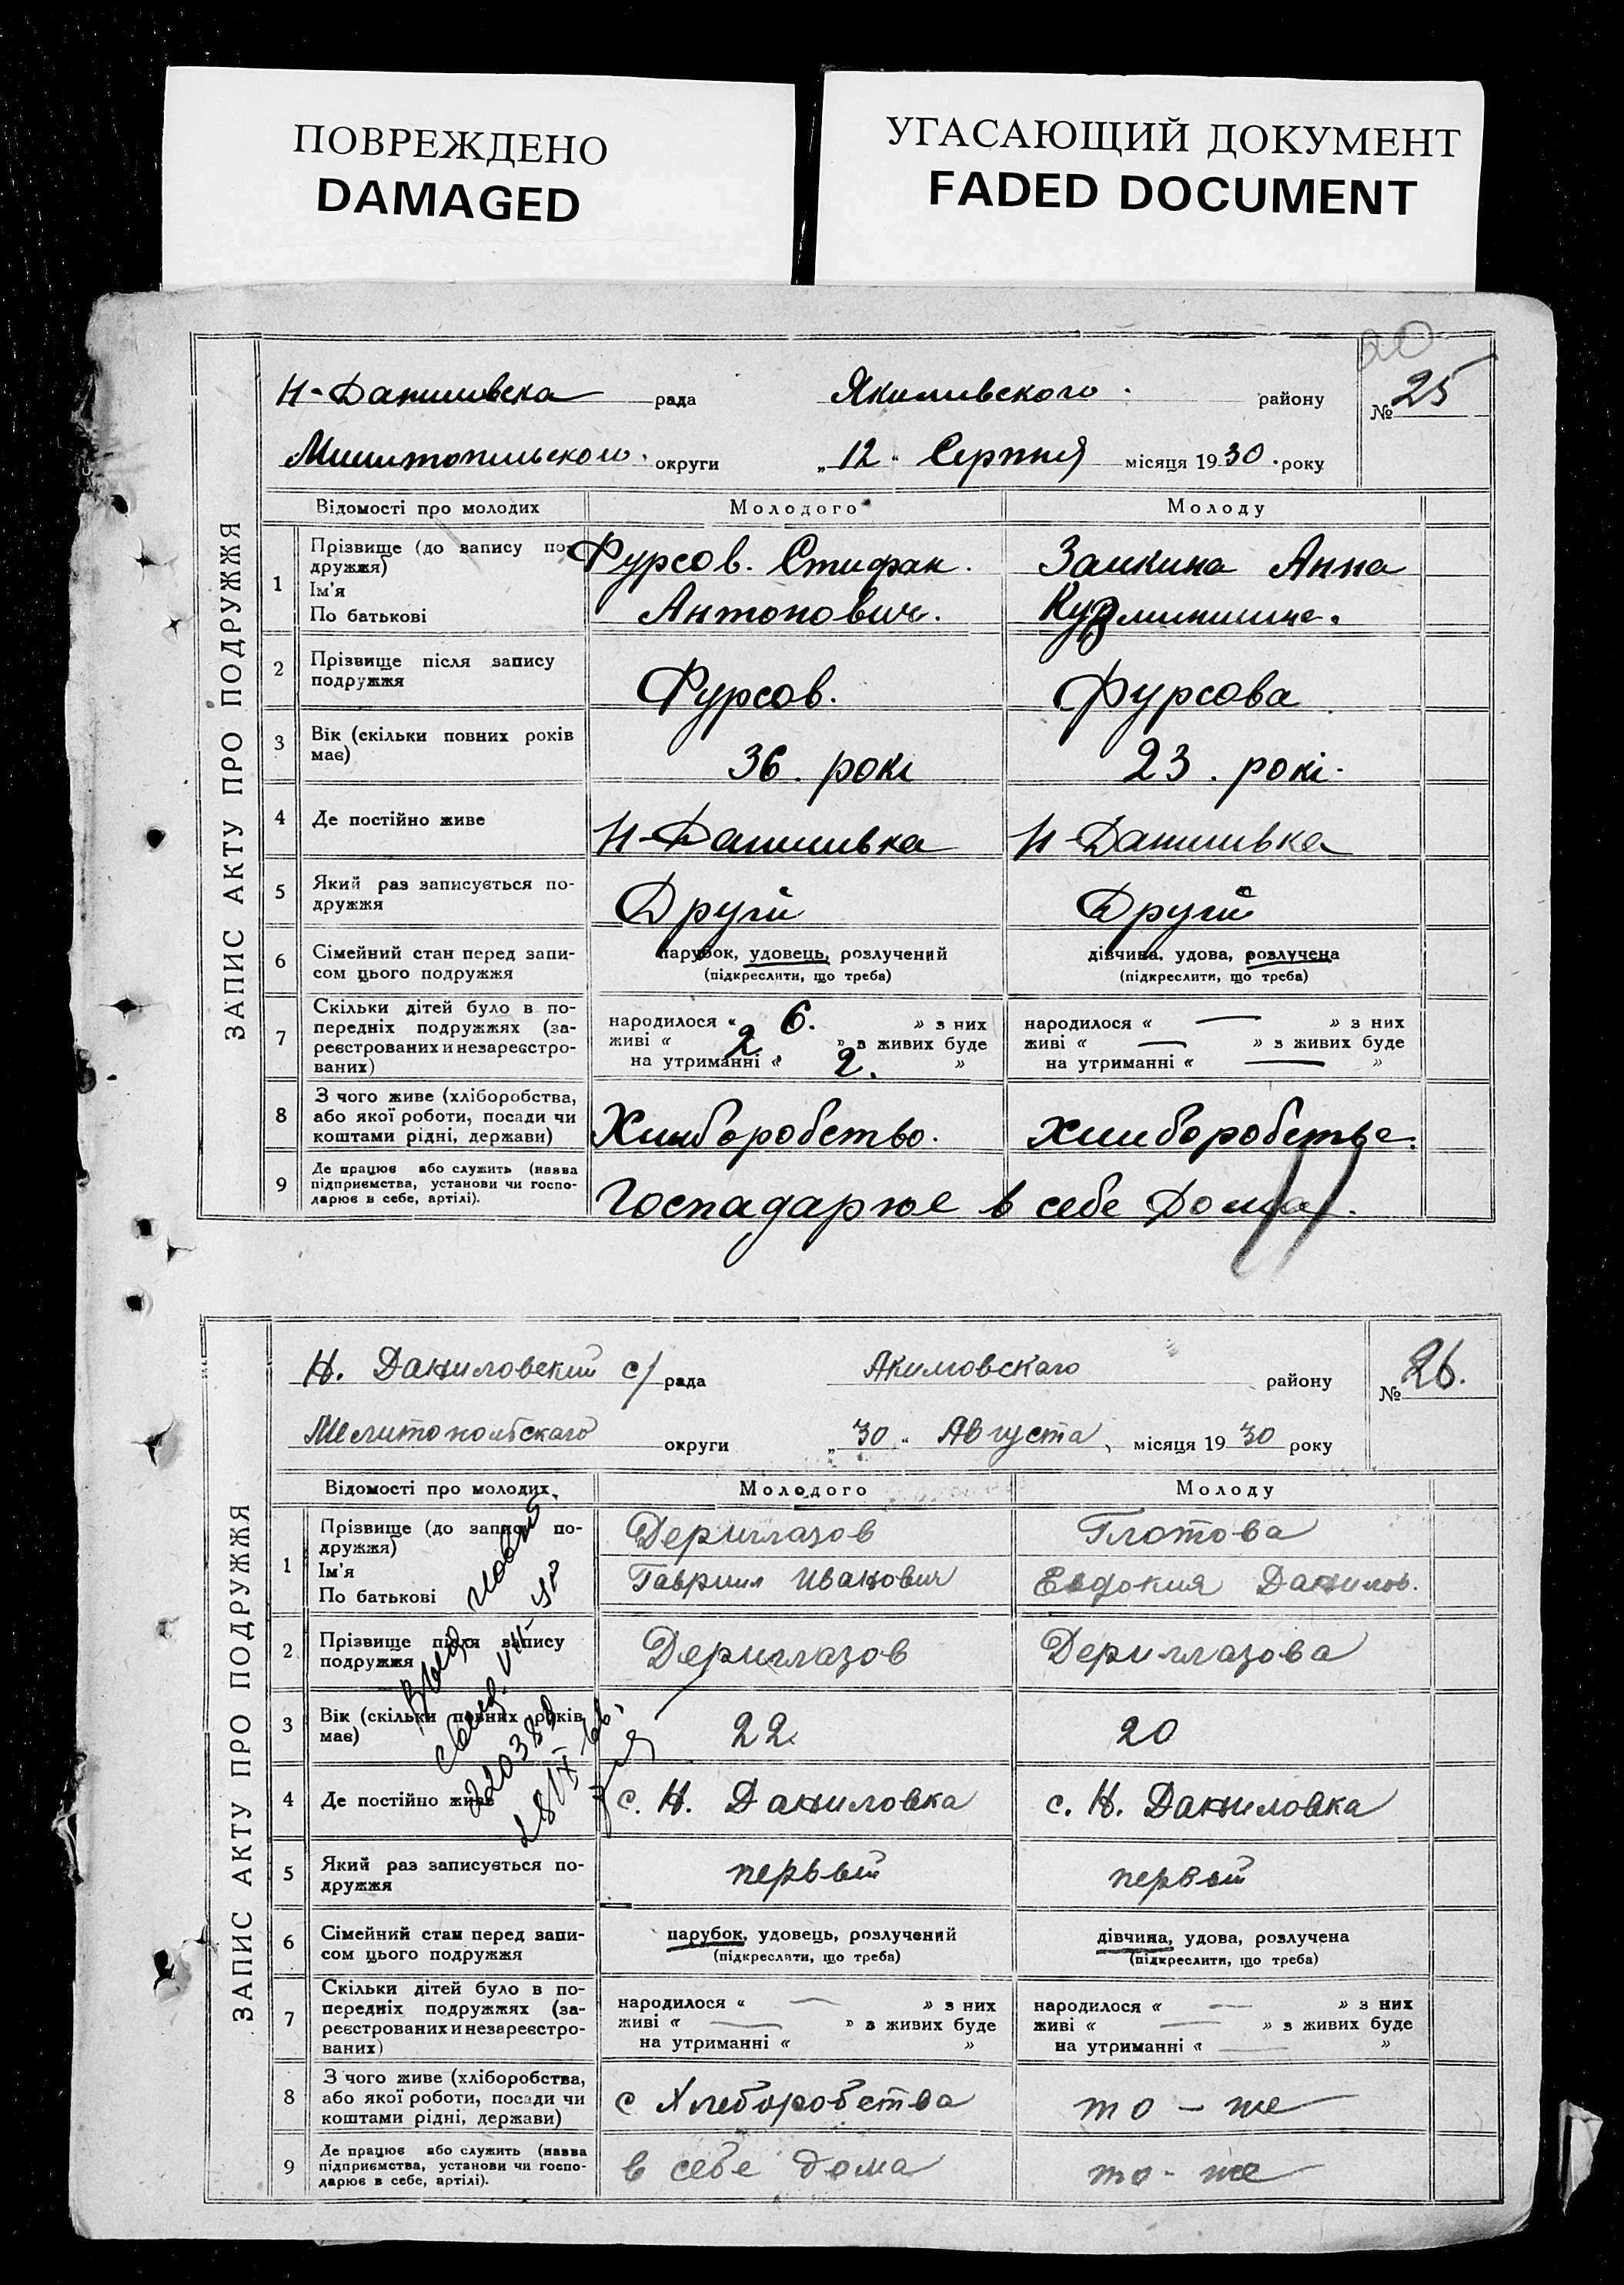 ПОВРЕЖДЕНО
DAMAGED
УГАСАЮЩИЙ ДОКУМЕНТ
FADED DOCUMENT
20
ЗАПИС АКТУ ПРО ПОДРУЖЖЯ
Н-Даниливска рада Якимивского району № 25
Милитопильского округи „12“ Серпня місяця 1930 року
Відомості про молодих Молодого Молоду
1 Прізвище (до запису подружжя) Ім'я По батькові Фурсов. Стифан Антонович. Заикина Анна
2 Прізвище після запису подружжя Фурсов. Фурсова
3 Вік (скільки повних років має) 36. рокі 23. рокі.
4 Де постійно живе Н-Даниливка Н-Даниливка
5 Який раз записується подружжя Другій Другій
6 Сімейний стан перед записом цього подружжя парубок, удовець, розлучений (підкреслити, що треба) дівчина, удова, розлучена (підкреслити, що треба)
7 Скільки дітей було в попередніх подружжях (зареєстрованих и незареєстрованих) народилося « 6. » з них живі « 2 » з живих буде на утриманні « 2. » народилося « — » з них живі « — » з живих буде на утриманні « — »
8 З чого живе (хліборобства, або якої роботи, посади чи коштами рідні, держави) Хлиборобство. Хлиборобство.
9 Де працює або служить (назва підприємства, установи чи господарює в себе, артілі). Госпадарює в себе Дома.
ЗАПИС АКТУ ПРО ПОДРУЖЖЯ
Н. Даниловский с/рада Акимовскаго району № 26.
Мелитопольскаго округи „30“ Августа, місяця 1930 року
Відомості про молодих Молодого Молоду
1 Прізвище (до запису подружжя) Ім'я По батькові Дериглазов Гавриил Иванович Глотова Евдокия Данилов.
2 Прізвище після запису подружжя Дериглазов Дериглазова
3 Вік (скільки повних років має) 22 20
4 Де постійно живе с. Н. Даниловка с. Н. Даниловка
5 Який раз записується подружжя первый первый
6 Сімейний стан перед записом цього подружжя парубок, удовець, розлучений (підкреслити, що треба) дівчина, удова, розлучена (підкреслити, що треба)
7 Скільки дітей було в попередніх подружжях (зареєстрованих и незареєстрованих) народилося « — » з них живі « — » з живих буде на утриманні « » народилося « — » з них живі « — » з живих буде на утриманні « — »
8 З чого живе (хліборобства, або якої роботи, посади чи коштами рідні, держави) с Хлеборобства то - же
9 Де працює або служить (назва підприємства, установи чи господарює в себе, артілі). в себе дома то - же